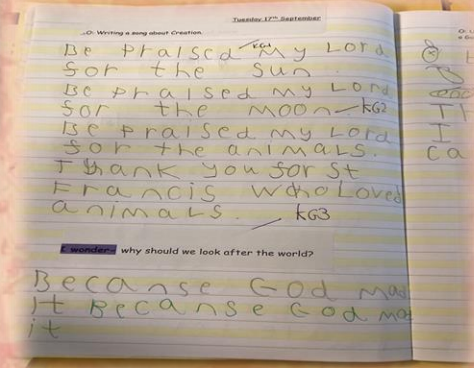 Tuesday 17th September
LO: Writing a song about Creation.
Be Praised my Lord KG1
for the sun
Be praised my Lord
for the moon KG2
Be praised my Lord
for the animals.
Thank you for St
Francis who Loved
animaLs. KG3
I wonder... why should we look after the world?
Becanse God mad
it Becanse God ma
it